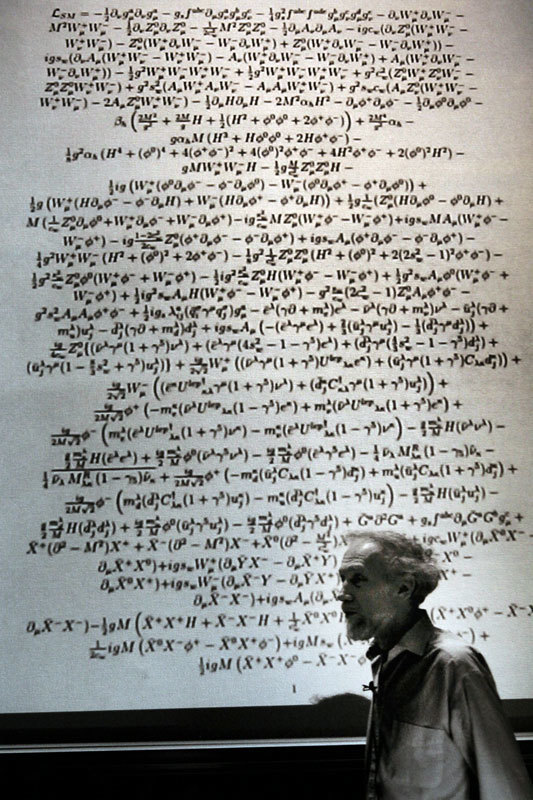 𝓛_SM = −½∂_νg^a_μ∂_νg^a_μ − g_sf^{abc}∂_μg^a_νg^b_μg^c_ν − ¼g²_sf^{abc}f^{ade}g^b_μg^c_νg^d_μg^e_ν − ∂_νW⁺_μ∂_νW⁻_μ −
M²W⁺_μW⁻_μ − ½∂_νZ⁰_μ∂_νZ⁰_μ − 1/(2c²_w) M²Z⁰_μZ⁰_μ − ½∂_μA_ν∂_μA_ν − igc_w(∂_νZ⁰_μ(W⁺_μW⁻_ν −
W⁺_νW⁻_μ) − Z⁰_ν(W⁺_μ∂_νW⁻_μ − W⁻_μ∂_νW⁺_μ) + Z⁰_μ(W⁺_ν∂_νW⁻_μ − W⁻_ν∂_νW⁺_μ)) −
igs_w(∂_νA_μ(W⁺_μW⁻_ν − W⁺_νW⁻_μ) − A_ν(W⁺_μ∂_νW⁻_μ − W⁻_μ∂_νW⁺_μ) + A_μ(W⁺_ν∂_νW⁻_μ −
W⁻_ν∂_νW⁺_μ)) − ½g²W⁺_μW⁻_μW⁺_νW⁻_ν + ½g²W⁺_μW⁻_νW⁺_μW⁻_ν + g²c²_w(Z⁰_μW⁺_μZ⁰_νW⁻_ν −
Z⁰_μZ⁰_μW⁺_νW⁻_ν) + g²s²_w(A_μW⁺_μA_νW⁻_ν − A_μA_μW⁺_νW⁻_ν) + g²s_wc_w(A_μZ⁰_ν(W⁺_μW⁻_ν −
W⁺_νW⁻_μ) − 2A_μZ⁰_μW⁺_νW⁻_ν) − ½∂_μH∂_μH − 2M²α_hH² − ∂_μφ⁺∂_μφ⁻ − ½∂_μφ⁰∂_μφ⁰ −
β_h (2M²/g² + 2M/g H + ½(H² + φ⁰φ⁰ + 2φ⁺φ⁻)) + 2M⁴/g² α_h −
gα_hM (H³ + Hφ⁰φ⁰ + 2Hφ⁺φ⁻) −
⅛g²α_h (H⁴ + (φ⁰)⁴ + 4(φ⁺φ⁻)² + 4(φ⁰)²φ⁺φ⁻ + 4H²φ⁺φ⁻ + 2(φ⁰)²H²) −
gMW⁺_μW⁻_μH − ½g M/c²_w Z⁰_μZ⁰_μH −
½ig (W⁺_μ(φ⁰∂_μφ⁻ − φ⁻∂_μφ⁰) − W⁻_μ(φ⁰∂_μφ⁺ − φ⁺∂_μφ⁰)) +
½g (W⁺_μ(H∂_μφ⁻ − φ⁻∂_μH) + W⁻_μ(H∂_μφ⁺ − φ⁺∂_μH)) + ½g 1/c_w (Z⁰_μ(H∂_μφ⁰ − φ⁰∂_μH) +
M (1/c_w Z⁰_μ∂_μφ⁰ + W⁺_μ∂_μφ⁻ + W⁻_μ∂_μφ⁺) − ig s²_w/c_w MZ⁰_μ(W⁺_μφ⁻ − W⁻_μφ⁺) + igs_wMA_μ(W⁺_μφ⁻ −
W⁻_μφ⁺) − ig (1−2c²_w)/(2c_w) Z⁰_μ(φ⁺∂_μφ⁻ − φ⁻∂_μφ⁺) + igs_wA_μ(φ⁺∂_μφ⁻ − φ⁻∂_μφ⁺) −
¼g²W⁺_μW⁻_μ (H² + (φ⁰)² + 2φ⁺φ⁻) − ⅛g² 1/c²_w Z⁰_μZ⁰_μ (H² + (φ⁰)² + 2(2s²_w − 1)²φ⁺φ⁻) −
½g² s²_w/c_w Z⁰_μφ⁰(W⁺_μφ⁻ + W⁻_μφ⁺) − ½ig² s²_w/c_w Z⁰_μH(W⁺_μφ⁻ − W⁻_μφ⁺) + ½g²s_wA_μφ⁰(W⁺_μφ⁻ +
W⁻_μφ⁺) + ½ig²s_wA_μH(W⁺_μφ⁻ − W⁻_μφ⁺) − g² s_w/c_w (2c²_w − 1)Z⁰_μA_μφ⁺φ⁻ −
g²s²_wA_μA_μφ⁺φ⁻ + ½ig_s λ^a_{ij}(q̄^σ_iγ^μq^σ_j)g^a_μ − ē^λ(γ∂ + m^λ_e)e^λ − ν̄^λ(γ∂ + m^λ_ν)ν^λ − ū^λ_j(γ∂ +
m^λ_u)u^λ_j − d̄^λ_j(γ∂ + m^λ_d)d^λ_j + igs_wA_μ (−(ē^λγ^μe^λ) + ⅔(ū^λ_jγ^μu^λ_j) − ⅓(d̄^λ_jγ^μd^λ_j)) +
ig/(4c_w) Z⁰_μ{(ν̄^λγ^μ(1 + γ⁵)ν^λ) + (ē^λγ^μ(4s²_w − 1 − γ⁵)e^λ) + (d̄^λ_jγ^μ(4/3 s²_w − 1 − γ⁵)d^λ_j) +
(ū^λ_jγ^μ(1 − 8/3 s²_w + γ⁵)u^λ_j)} + ig/(2√2) W⁺_μ ((ν̄^λγ^μ(1 + γ⁵)U^{lep}_{λκ}e^κ) + (ū^λ_jγ^μ(1 + γ⁵)C_{λκ}d^κ_j)) +
ig/(2√2) W⁻_μ ((ē^κU^{lep†}_{κλ}γ^μ(1 + γ⁵)ν^λ) + (d̄^κ_jC†_{κλ}γ^μ(1 + γ⁵)u^λ_j)) +
ig/(2M√2) φ⁺ (−m^κ_e(ν̄^λU^{lep}_{λκ}(1 − γ⁵)e^κ) + m^λ_ν(ν̄^λU^{lep}_{λκ}(1 + γ⁵)e^κ) +
ig/(2M√2) φ⁻ (m^λ_e(ē^λU^{lep†}_{λκ}(1 + γ⁵)ν^κ) − m^κ_ν(ē^λU^{lep†}_{λκ}(1 − γ⁵)ν^κ) − g/2 m^λ_ν/M H(ν̄^λν^λ) −
g/2 m^λ_e/M H(ē^λe^λ) + ig/2 m^λ_ν/M φ⁰(ν̄^λγ⁵ν^λ) − ig/2 m^λ_e/M φ⁰(ē^λγ⁵e^λ) − ¼ ν̄_λ M^R_{λκ} (1 − γ₅)ν̂_κ −
¼ ν̄_λ M^R_{λκ} (1 − γ₅)ν̂_κ + ig/(2M√2) φ⁺ (−m^κ_d(ū^λ_jC_{λκ}(1 − γ⁵)d^κ_j) + m^λ_u(ū^λ_jC_{λκ}(1 + γ⁵)d^κ_j) +
ig/(2M√2) φ⁻ (m^λ_d(d̄^λ_jC†_{λκ}(1 + γ⁵)u^κ_j) − m^κ_u(d̄^λ_jC†_{λκ}(1 − γ⁵)u^κ_j) − g/2 m^λ_u/M H(ū^λ_ju^λ_j) −
g/2 m^λ_d/M H(d̄^λ_jd^λ_j) + ig/2 m^λ_u/M φ⁰(ū^λ_jγ⁵u^λ_j) − ig/2 m^λ_d/M φ⁰(d̄^λ_jγ⁵d^λ_j) + Ḡ^a∂²G^a + g_sf^{abc}∂_μḠ^aG^bg^c_μ +
X̄⁺(∂² − M²)X⁺ + X̄⁻(∂² − M²)X⁻ + X̄⁰(∂² − igc_wW⁺_μ(∂_μX̄⁰X⁻ −
∂_μX̄⁺X⁰) + igs_wW⁺_μ(∂_μȲX⁻ − ∂_μX̄⁺Y) X⁰ −
∂_μX̄⁰X⁺) + igs_wW⁻_μ(∂_μX̄⁻Y − ∂_μȲX⁺) −
∂_μX̄⁻X⁻) + igs_wA_μ(∂_μ
∂_μX̄⁻X⁻) − ½gM (X̄⁺X⁺H + X̄⁻X⁻H + (X̄⁺X⁰φ⁺ − X̄⁻X
1/(2c_w) igM (X̄⁰X⁻φ⁺ − X̄⁰X⁺φ⁻) + igMs_w +
½igM (X̄⁺X⁺φ⁰ − X̄⁻X⁻φ
1